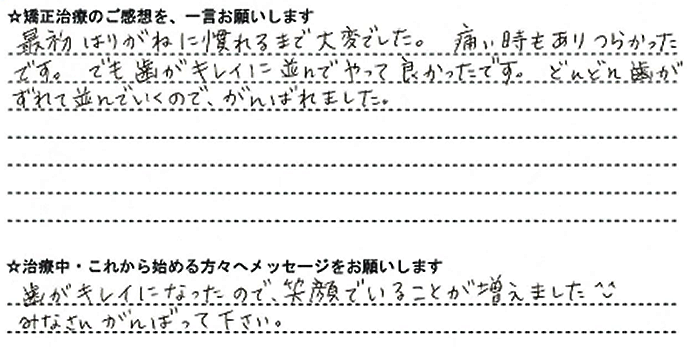 ☆矯正治療のご感想を、一言お願いします
最初はりがねに慣れるまで大変でした。 痛い時もありつらかった
です。 でも歯がキレイに並んでやって良かったです。 どんどん歯が
ずれて並んでいくので、がんばれました。
☆治療中・これから始める方々へメッセージをお願いします
歯がキレイになったので、笑顔でいることが増えました^^
みなさんがんばって下さい。